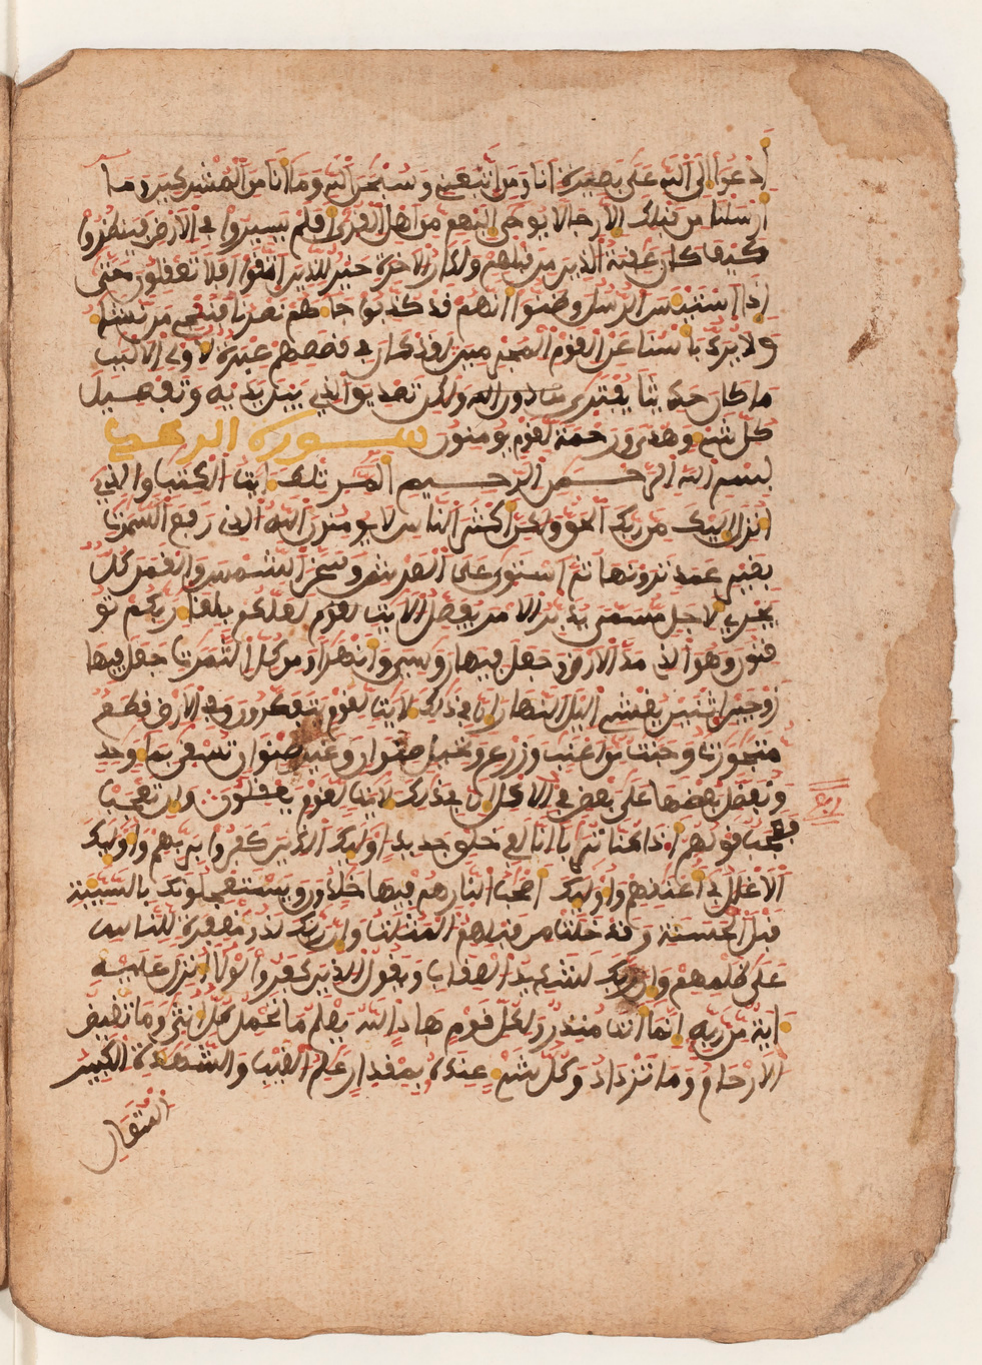 ادعوا الى الله على بصيرة انا ومن اتبعني وسبحن الله وما انا من المشركين وما
ارسلنا من قبلك الا رجالا يوحى اليهم من اهل القرى افلم يسيروا في الارض فينظروا
كيف كان عقبة الذين من قبلهم ولدار الاخرة خير للذين اتقوا افلا تعقلون حتى
اذا استيـس الرسل وظنوا انهم قد كذبوا جاءهم نصرنا فننجي من نشاء
ولا يرد باسنا عن القوم المجرمين لقد كان في قصصهم عبرة لاولي الالبب
ما كان حديثا يفترى من دون الله ولكن تصديق الذي بين يديه وتفصيل
كل شيء وهدى ورحمة لقوم يومنون سورة الرعد
بسم الله الرحمن الرحيم المر تلك ايت الكتب والذي
انزل اليك من ربك الحق ولكن اكثر الناس لا يومنون الله الذي رفع السموت
بغير عمد ترونها ثم استوى على العرش وسخر الشمس والقمر كل
يجري لاجل مسمى يدبر الامر يفصل الايت لقوم لعلكم بلقاء ربكم تو
قنون وهو الذي مد الارض وجعل فيها روسي وانهرا ومن كل الثمرت جعل فيها
زوجين اثنين يغشي اليل النهار ان في ذلك لايت لقوم يتفكرون وفي الارض قطع
متجورت وجنت من اعنب وزرع ونخيل صنوان وغير صنوان تسقى بماء وحد
ونفضل بعضها على بعض في الاكل ان في ذلك لايت لقوم يعقلون وان تعجب
فعجب قولهم اذا كنا تربا انا لفي خلق جديد اوليك الذين كفروا بربهم واوليك
الاغلل في اعنقهم واوليك اصحب النار هم فيها خلدون ويستعجلونك بالسيية
قبل الحسنة وقد خلت من قبلهم المثلت وان ربك لذو مغفرة للناس
على ظلمهم وان ربك لشديد العقاب ويقول الذين كفروا لولا انزل عليه
اية من ربه انما انت منذر ولكل قوم هاد الله يعلم ما تحمل كل انثى وما تغيض
الارحام وما تزداد وكل شيء عنده بمقدار علم الغيب والشهدة الكبير
المتعال